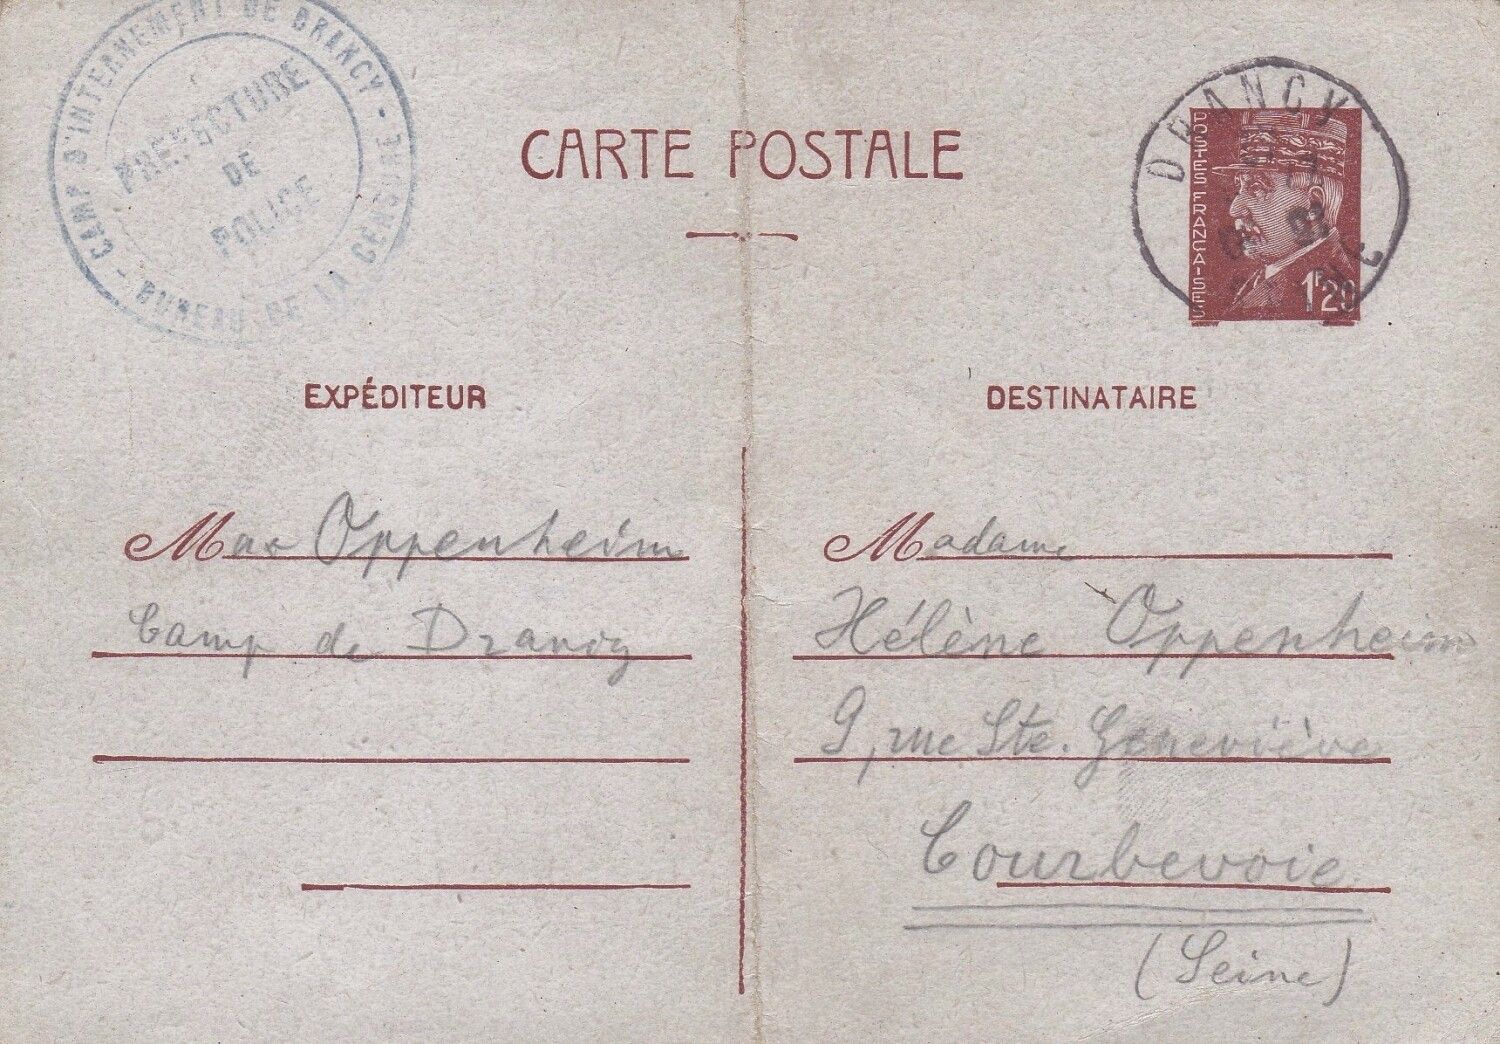 - CAMP D'INTERNEMENT DE DRANCY -
BUREAU DE LA CENSURE
PREFECTURE
DE
POLICE
CARTE POSTALE
DRANCY
POSTES FRANÇAISES
1F20
EXPÉDITEUR
Max Oppenheim
Camp de Drancy
DESTINATAIRE
Madame
Hélène Oppenheim
9, rue Ste. Geneviève
Courbevoie
(Seine)